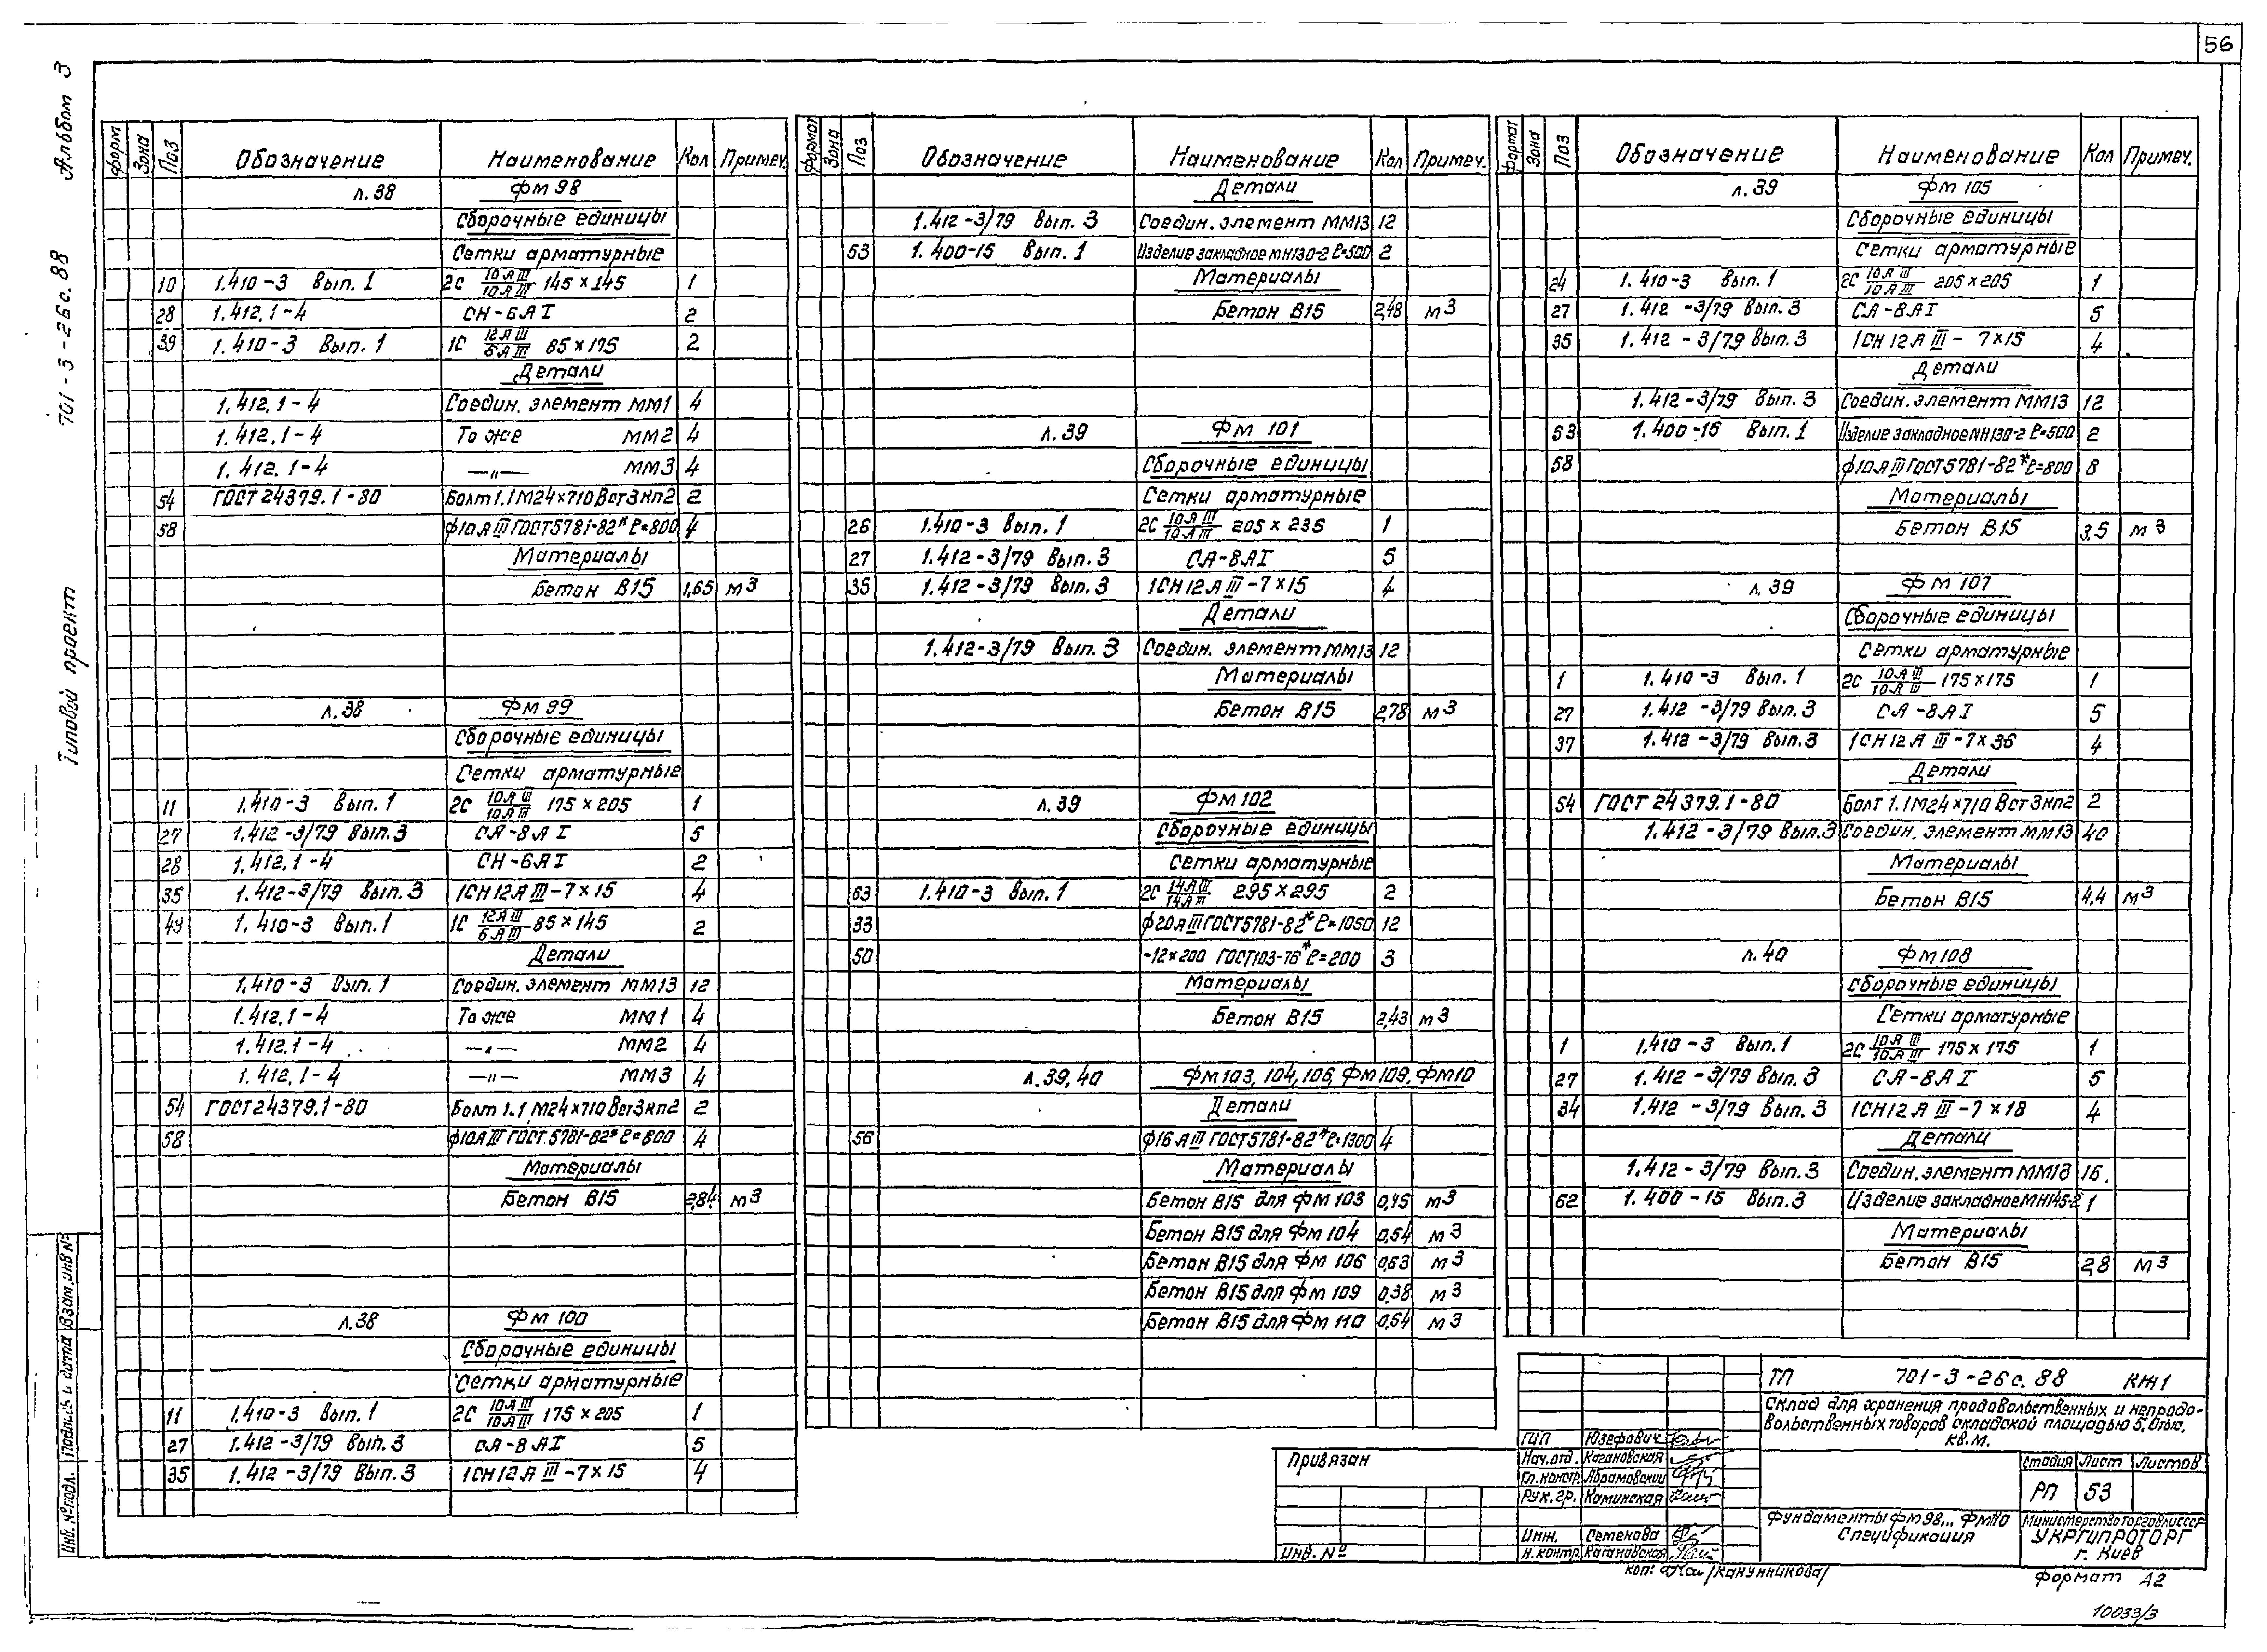 56
Альбом 3
701-3-26с.88
Типовой проект
Форм Зона Поз Обозначение Наименование Кол Примеч.
л.38 Фм 98
Сборочные единицы
Сетки арматурные
10 1.410-3 Вып. 1 2С 10АIII/10АIII 145×145 1
28 1.412.1-4 СН-6АI 2
39 1.410-3 Вып. 1 1С 12АIII/6АIII 85×175 2
Детали
1.412.1-4 Соедин. элемент ММ1 4
1.412.1-4 То же ММ2 4
1.412.1-4 —"— ММ3 4
54 ГОСТ 24379.1-80 Болт 1.1М24×710 Вст3кп2 2
58 ф10АIII ГОСТ5781-82* ℓ=800 4
Материалы
Бетон В15 1,65 м3
л.38 Фм 99
Сборочные единицы
Сетки арматурные
11 1.410-3 Вып. 1 2С 10АIII/10АIII 175×205 1
27 1.412-3/79 Вып.3 СА-8АI 5
28 1.412.1-4 СН-6АI 2
35 1.412-3/79 Вып.3 1СН12АIII-7×15 4
49 1.410-3 Вып.1 1С 12АIII/6АIII 85×145 2
Детали
1.410-3 Вып. 1 Соедин. элемент ММ13 12
1.412.1-4 То же ММ1 4
1.412.1-4 —"— ММ2 4
1.412.1-4 —"— ММ3 4
54 ГОСТ24379.1-80 Болт 1.1 М24×710 Вст3кп2 2
58 ф10АIII ГОСТ.5781-82* ℓ=800 4
Материалы
Бетон В15 2,84 м3
л.38 Фм 100
Сборочные единицы
Сетки арматурные
11 1.410-3 Вып.1 2С 10АIII/10АIII 175×205 1
27 1.412-3/79 Вып.3 СА-8АI 5
35 1.412-3/79 Вып.3 1СН12АIII-7×15 4
Формат Зона Поз Обозначение Наименование Кол Примеч.
Детали
1.412-3/79 Вып. 3 Соедин. элемент ММ13 12
53 1.400-15 Вып. 1 Изделие закладное МН130-2 ℓ=500 2
Материалы
Бетон В15 2,48 м3
л.39 Фм 101
Сборочные единицы
Сетки арматурные
26 1.410-3 Вып. 1 2С 10АIII/10АIII 205×235 1
27 1.412-3/79 Вып. 3 СА-8АI 5
35 1.412-3/79 Вып. 3 1СН12АIII-7×15 4
Детали
1.412-3/79 Вып. 3 Соедин. элемент ММ13 12
Материалы
Бетон В15 2,78 м3
л.39 Фм 102
Сборочные единицы
Сетки арматурные
63 1.410-3 Вып. 1 2С 14АIII/14АIII 295×295 2
33 ф20АIII ГОСТ5781-82* ℓ=1050 12
50 -12×200 ГОСТ103-76* ℓ=200 3
Материалы
Бетон В15 2,43 м3
л.39,40 Фм 103, 104, 106, Фм 109, Фм10
Детали
56 ф16АIII ГОСТ5781-82* ℓ=1300 4
Материалы
Бетон В15 для Фм 103 0,45 м3
Бетон В15 для Фм 104 0,54 м3
Бетон В15 для Фм 106 0,63 м3
Бетон В15 для Фм 109 0,38 м3
Бетон В15 для Фм 110 0,54 м3
Формат Зона Поз Обозначение Наименование Кол Примеч.
л.39 Фм 105
Сборочные единицы
Сетки арматурные
24 1.410-3 Вып. 1 2С 10АIII/10АIII 205×205 1
27 1.412-3/79 Вып. 3 СА-8АI 5
35 1.412-3/79 Вып. 3 1СН12АIII-7×15 4
Детали
1.412-3/79 Вып. 3 Соедин. элемент ММ13 12
53 1.400-15 Вып. 1 Изделие закладное МН130-2 ℓ=500 2
58 ф10АIII ГОСТ5781-82* ℓ=800 8
Материалы
Бетон В15 3,5 м3
л.39 Фм 107
Сборочные единицы
Сетки арматурные
1 1.410-3 Вып. 1 2С 10АIII/10АIII 175×175 1
27 1.412-3/79 Вып. 3 СА-8АI 5
37 1.412-3/79 Вып.3 1СН12АIII-7×36 4
Детали
54 ГОСТ 24379.1-80 Болт 1.1М24×710 Вст3кп2 2
1.412-3/79 Вып.3 Соедин. элемент ММ13 40
Материалы
Бетон В15 4,4 м3
л.40 Фм 108
Сборочные единицы
Сетки арматурные
1 1.410-3 Вып.1 2С 10АIII/10АIII 175×175 1
27 1.412-3/79 Вып.3 СА-8АI 5
34 1.412-3/79 Вып.3 1СН12АIII-7×18 4
Детали
1.412-3/79 Вып.3 Соедин. элемент ММ13 16
62 1.400-15 Вып.3 Изделие закладное МН145-2 1
Материалы
Бетон В15 2,8 м3
Инв. № подл. Подпись и дата Взам. инв №
Привязан
Инв. №
ТП 701-3-26с.88 КЖ1
Склад для хранения продовольственных и непродо-
вольственных товаров складской площадью 5,0тыс.
кв.м.
ГИП Юзефович
Нач.отд. Казановская
Гл.констр. Абрамовский
Рук.гр. Каминская
Инж. Семенова
Н.контр. Казановская
Стадия Лист Листов
РП 53
Фундаменты Фм 98... Фм110
Спецификация
Министерство торговли СССР
УКРГИПРОТОРГ
г. Киев
коп: /Канунникова/
Формат А2
10033/3